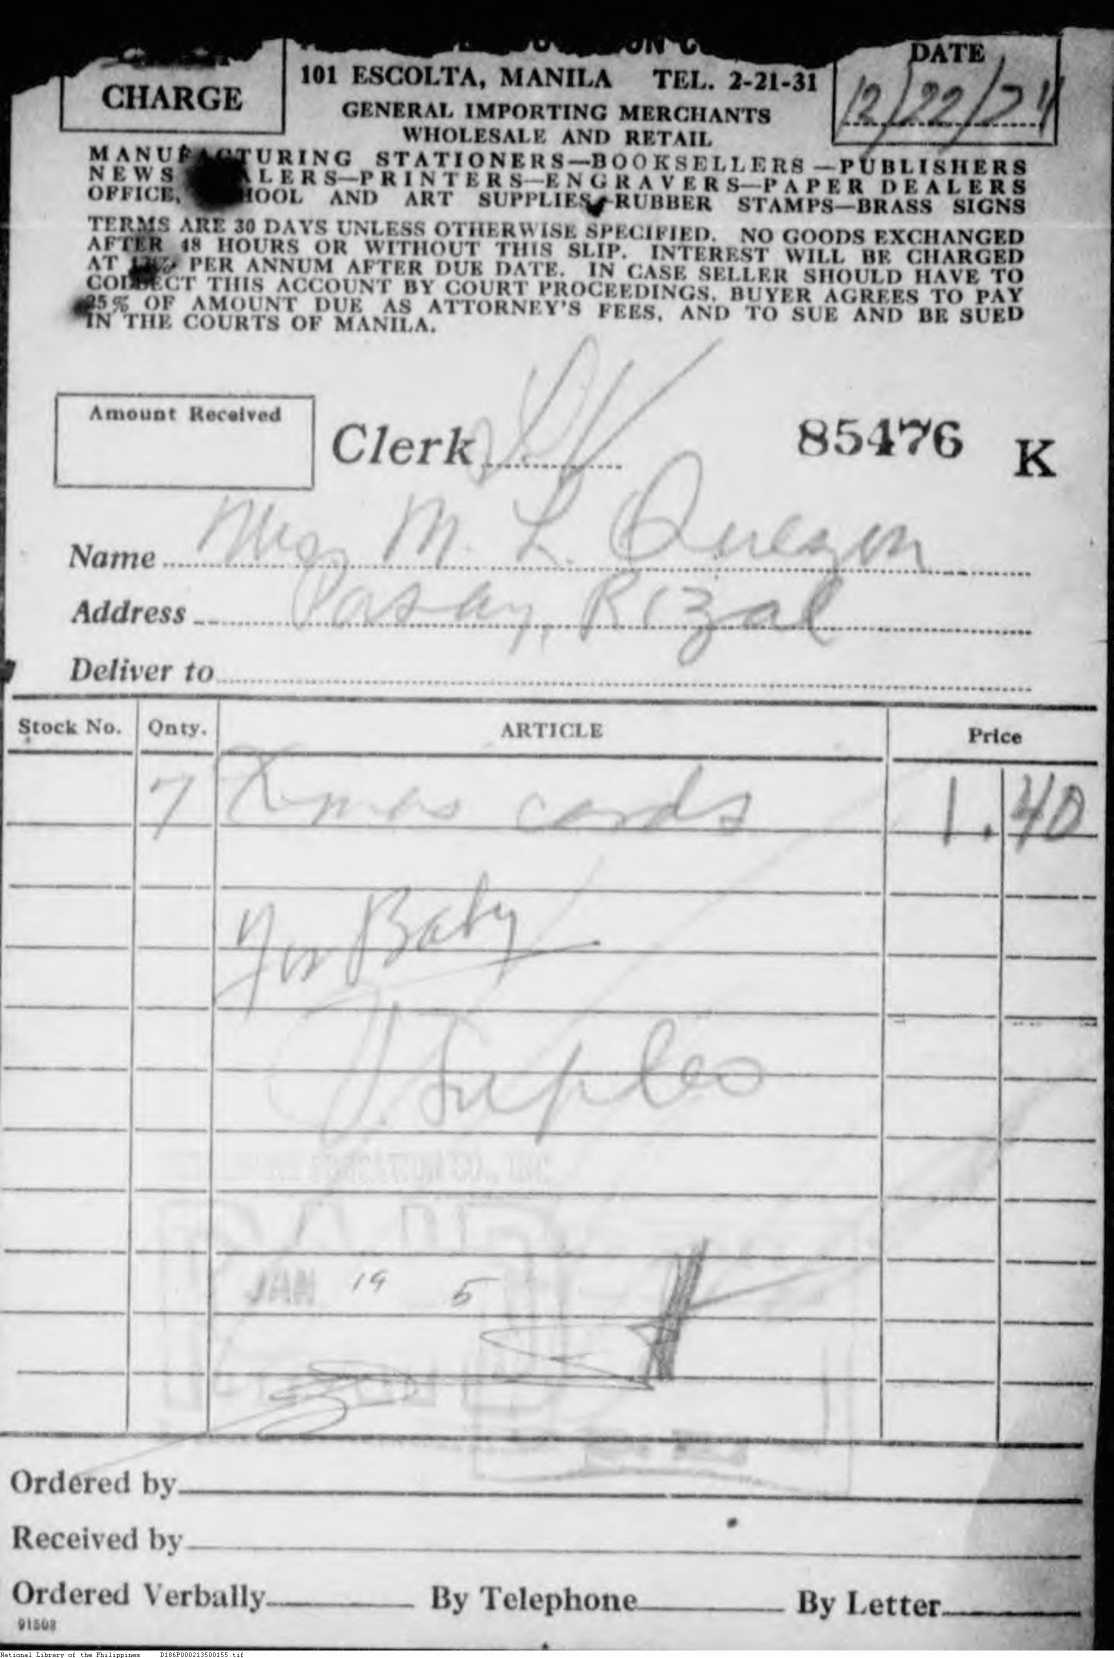 CHARGE
101 ESCOLTA, MANILA TEL. 2-21-31
GENERAL IMPORTING MERCHANTS
WHOLESALE AND RETAIL
DATE
12/22/24
MANUFACTURING STATIONERS—BOOKSELLERS—PUBLISHERS
NEWS DEALERS—PRINTERS—ENGRAVERS—PAPER DEALERS
OFFICE, SCHOOL AND ART SUPPLIES—RUBBER STAMPS—BRASS SIGNS
TERMS ARE 30 DAYS UNLESS OTHERWISE SPECIFIED. NO GOODS EXCHANGED
AFTER 48 HOURS OR WITHOUT THIS SLIP. INTEREST WILL BE CHARGED
AT 12% PER ANNUM AFTER DUE DATE. IN CASE SELLER SHOULD HAVE TO
COLLECT THIS ACCOUNT BY COURT PROCEEDINGS, BUYER AGREES TO PAY
25% OF AMOUNT DUE AS ATTORNEY'S FEES, AND TO SUE AND BE SUED
IN THE COURTS OF MANILA.
Amount Received
Clerk
85476 K
Name Mrs M. L. Quezon
Address Pasay, Rizal
Deliver to
Stock No. Qnty. ARTICLE Price
7 Xmas cards 1.40
for Baby
J. Supleo
EDUCATION CO., INC.
PAID
JAN 19 5
Ordered by
Received by
Ordered Verbally By Telephone By Letter
91508
National Library of the Philippines D186P000213500155.tif